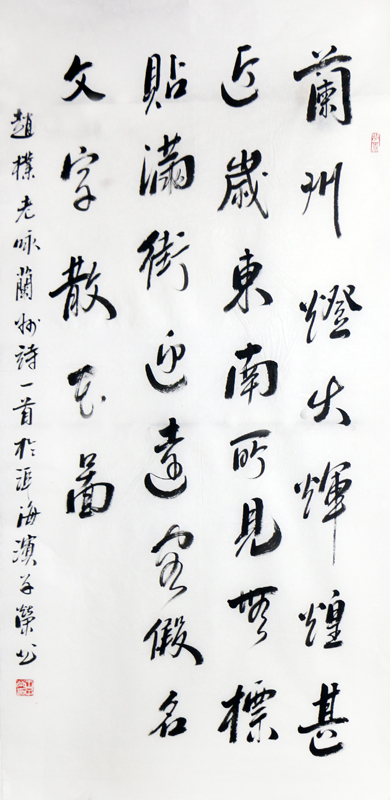 蘭州燈火輝煌甚
近歲東南所見無標
貼滿街迎遠客假名
文字散花圖
趙樸老咏蘭州詩一首於渤海濱子榮書